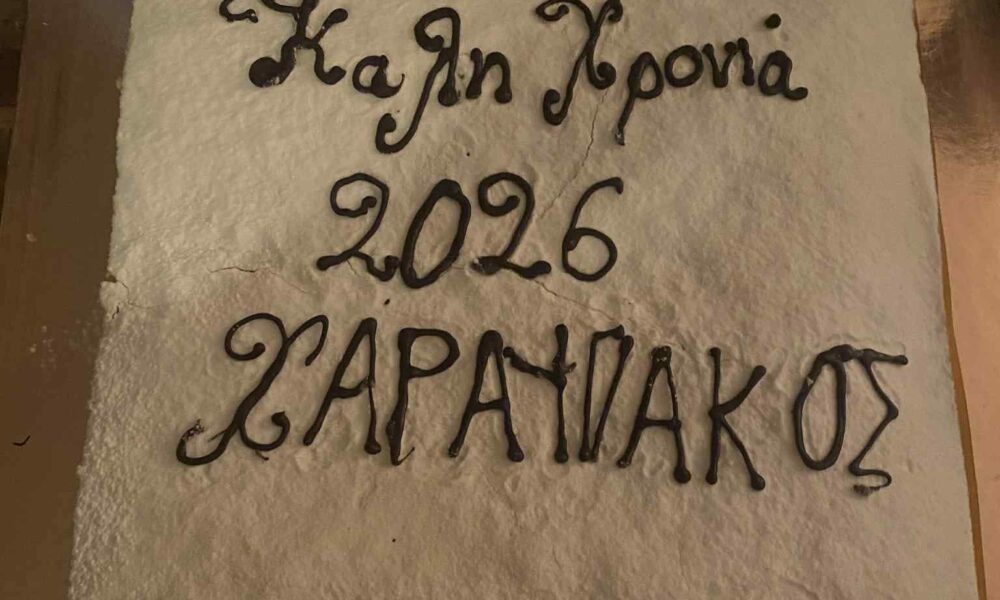 Καλη Χρονιά
2026
ΧΑΡΑΥΠΑΚΟΣ